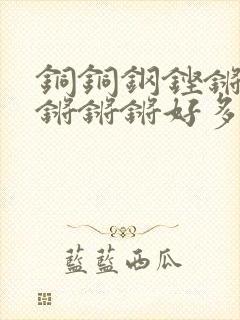 銅銅鋼鏗鏘
鏘鏘鏘好多
藍藍西瓜